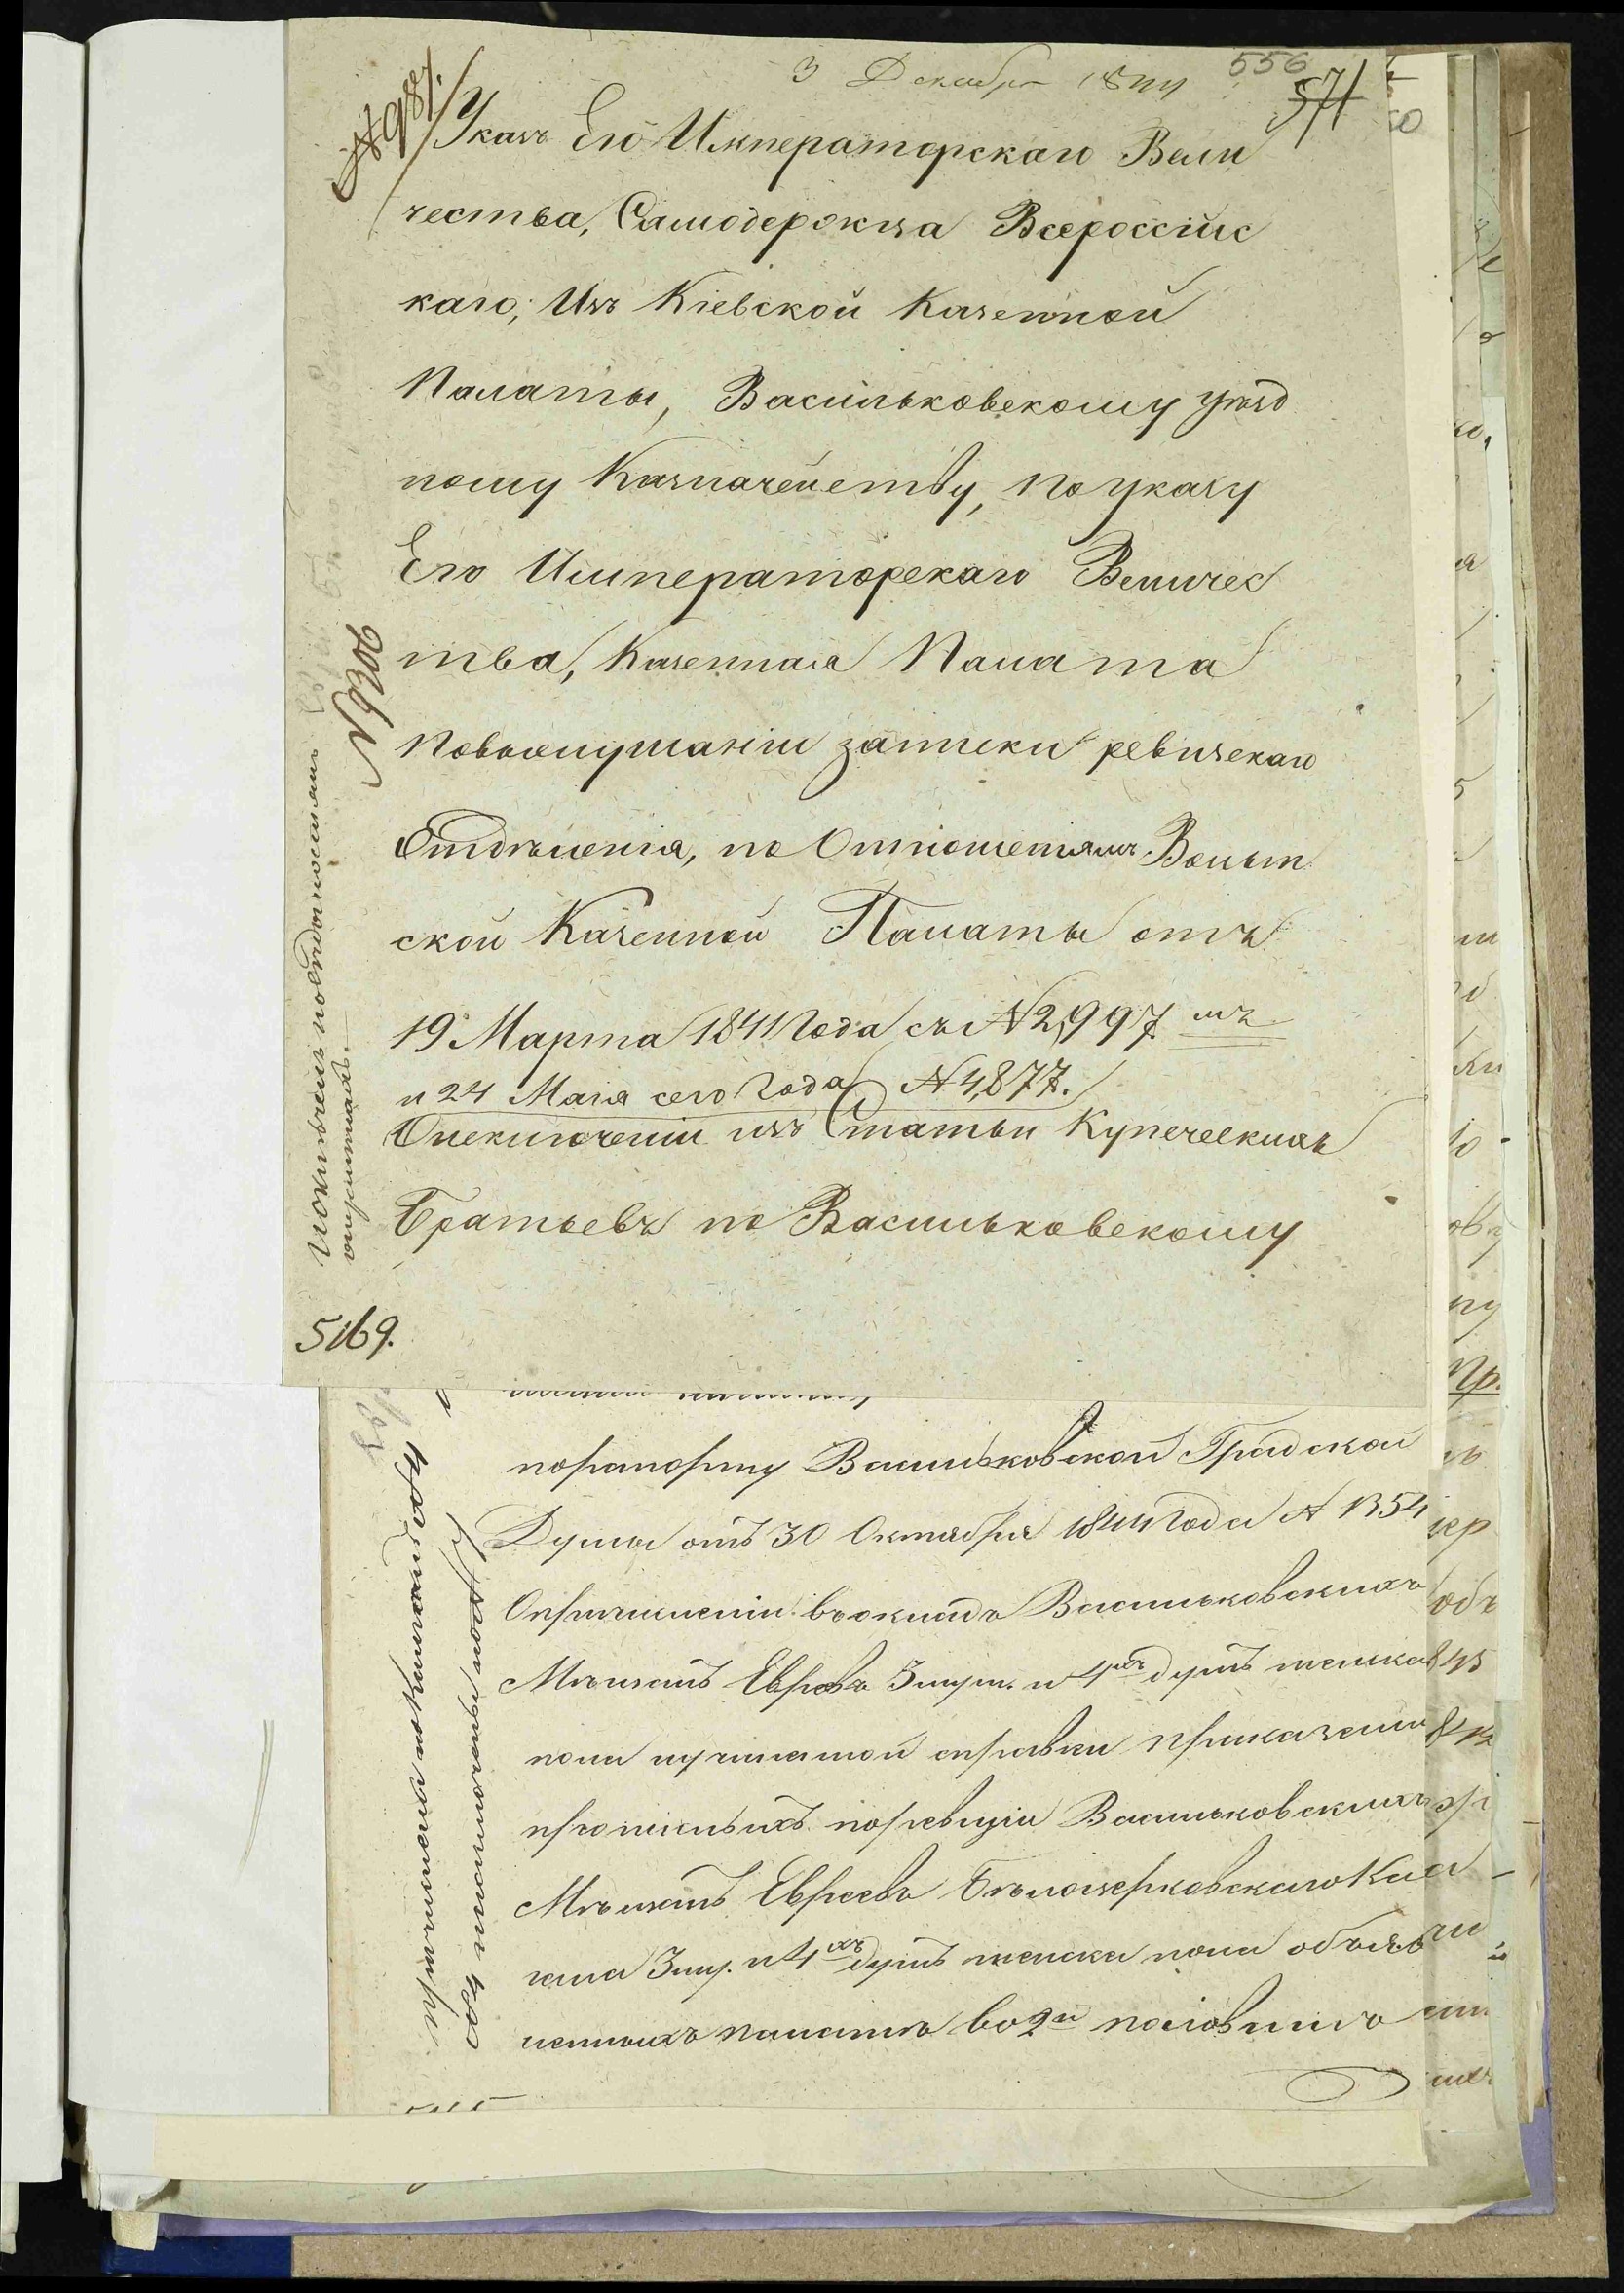 3 Декабря 1844
556
571
№ 987.
Указъ Его Императорскаго Вели
чества, Самодержца Всероссійс
каго; Изъ Кіевской Казенной
Палаты, Васильковскому уѣзд
ному Казначейству, по указу
Его Императорскаго Величес
тва, Казенная Палата
повыслушаніи записки ревизскаго
Отдѣленія, по Отношеніямъ Волын
ской Казенной Палаты отъ
19 Марта 1841 года съ № 2,997. мъ
и 24 Маія сего года № 4,877.
Оисключеніи изъ Статьи Купеческихъ
Братьевъ по Васильковскому
№ 9306
исключены повѣдомостямъ
5169.
порапорту Васильковской Градской
Думы отъ 30 Октября 1844 года № 1354
Опричисленіи въокладъ Васильковскихъ
Мѣщанъ Евреевъ 5 муж. и 4хъ душъ женска
пола и учиненной справки Приказали
пропислыхъ поревизіи Васильковскихъ
Мѣщанъ Евреевъ Бѣлоцерковскаго Ка
гала 3 му. и 4хъ душъ женска пола объяв
ленныхъ палатѣ во 2й половинѣ